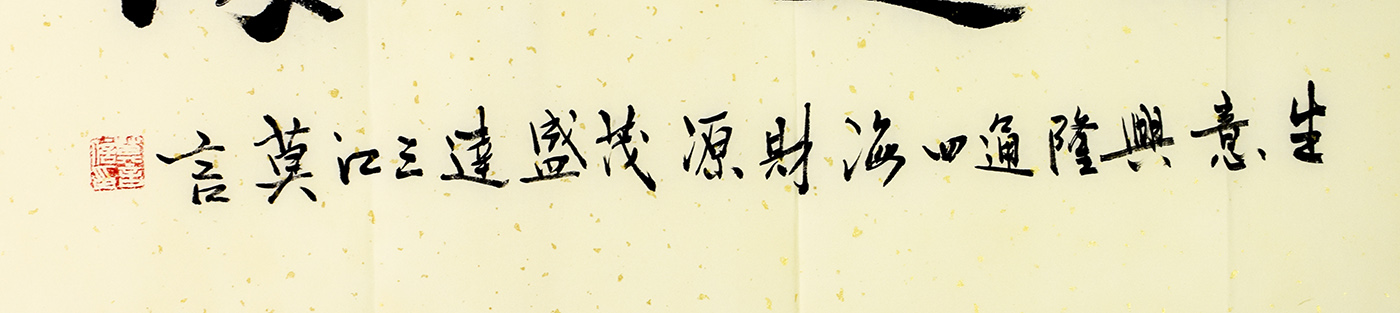 生意興隆通四海財源茂盛達三江莫言